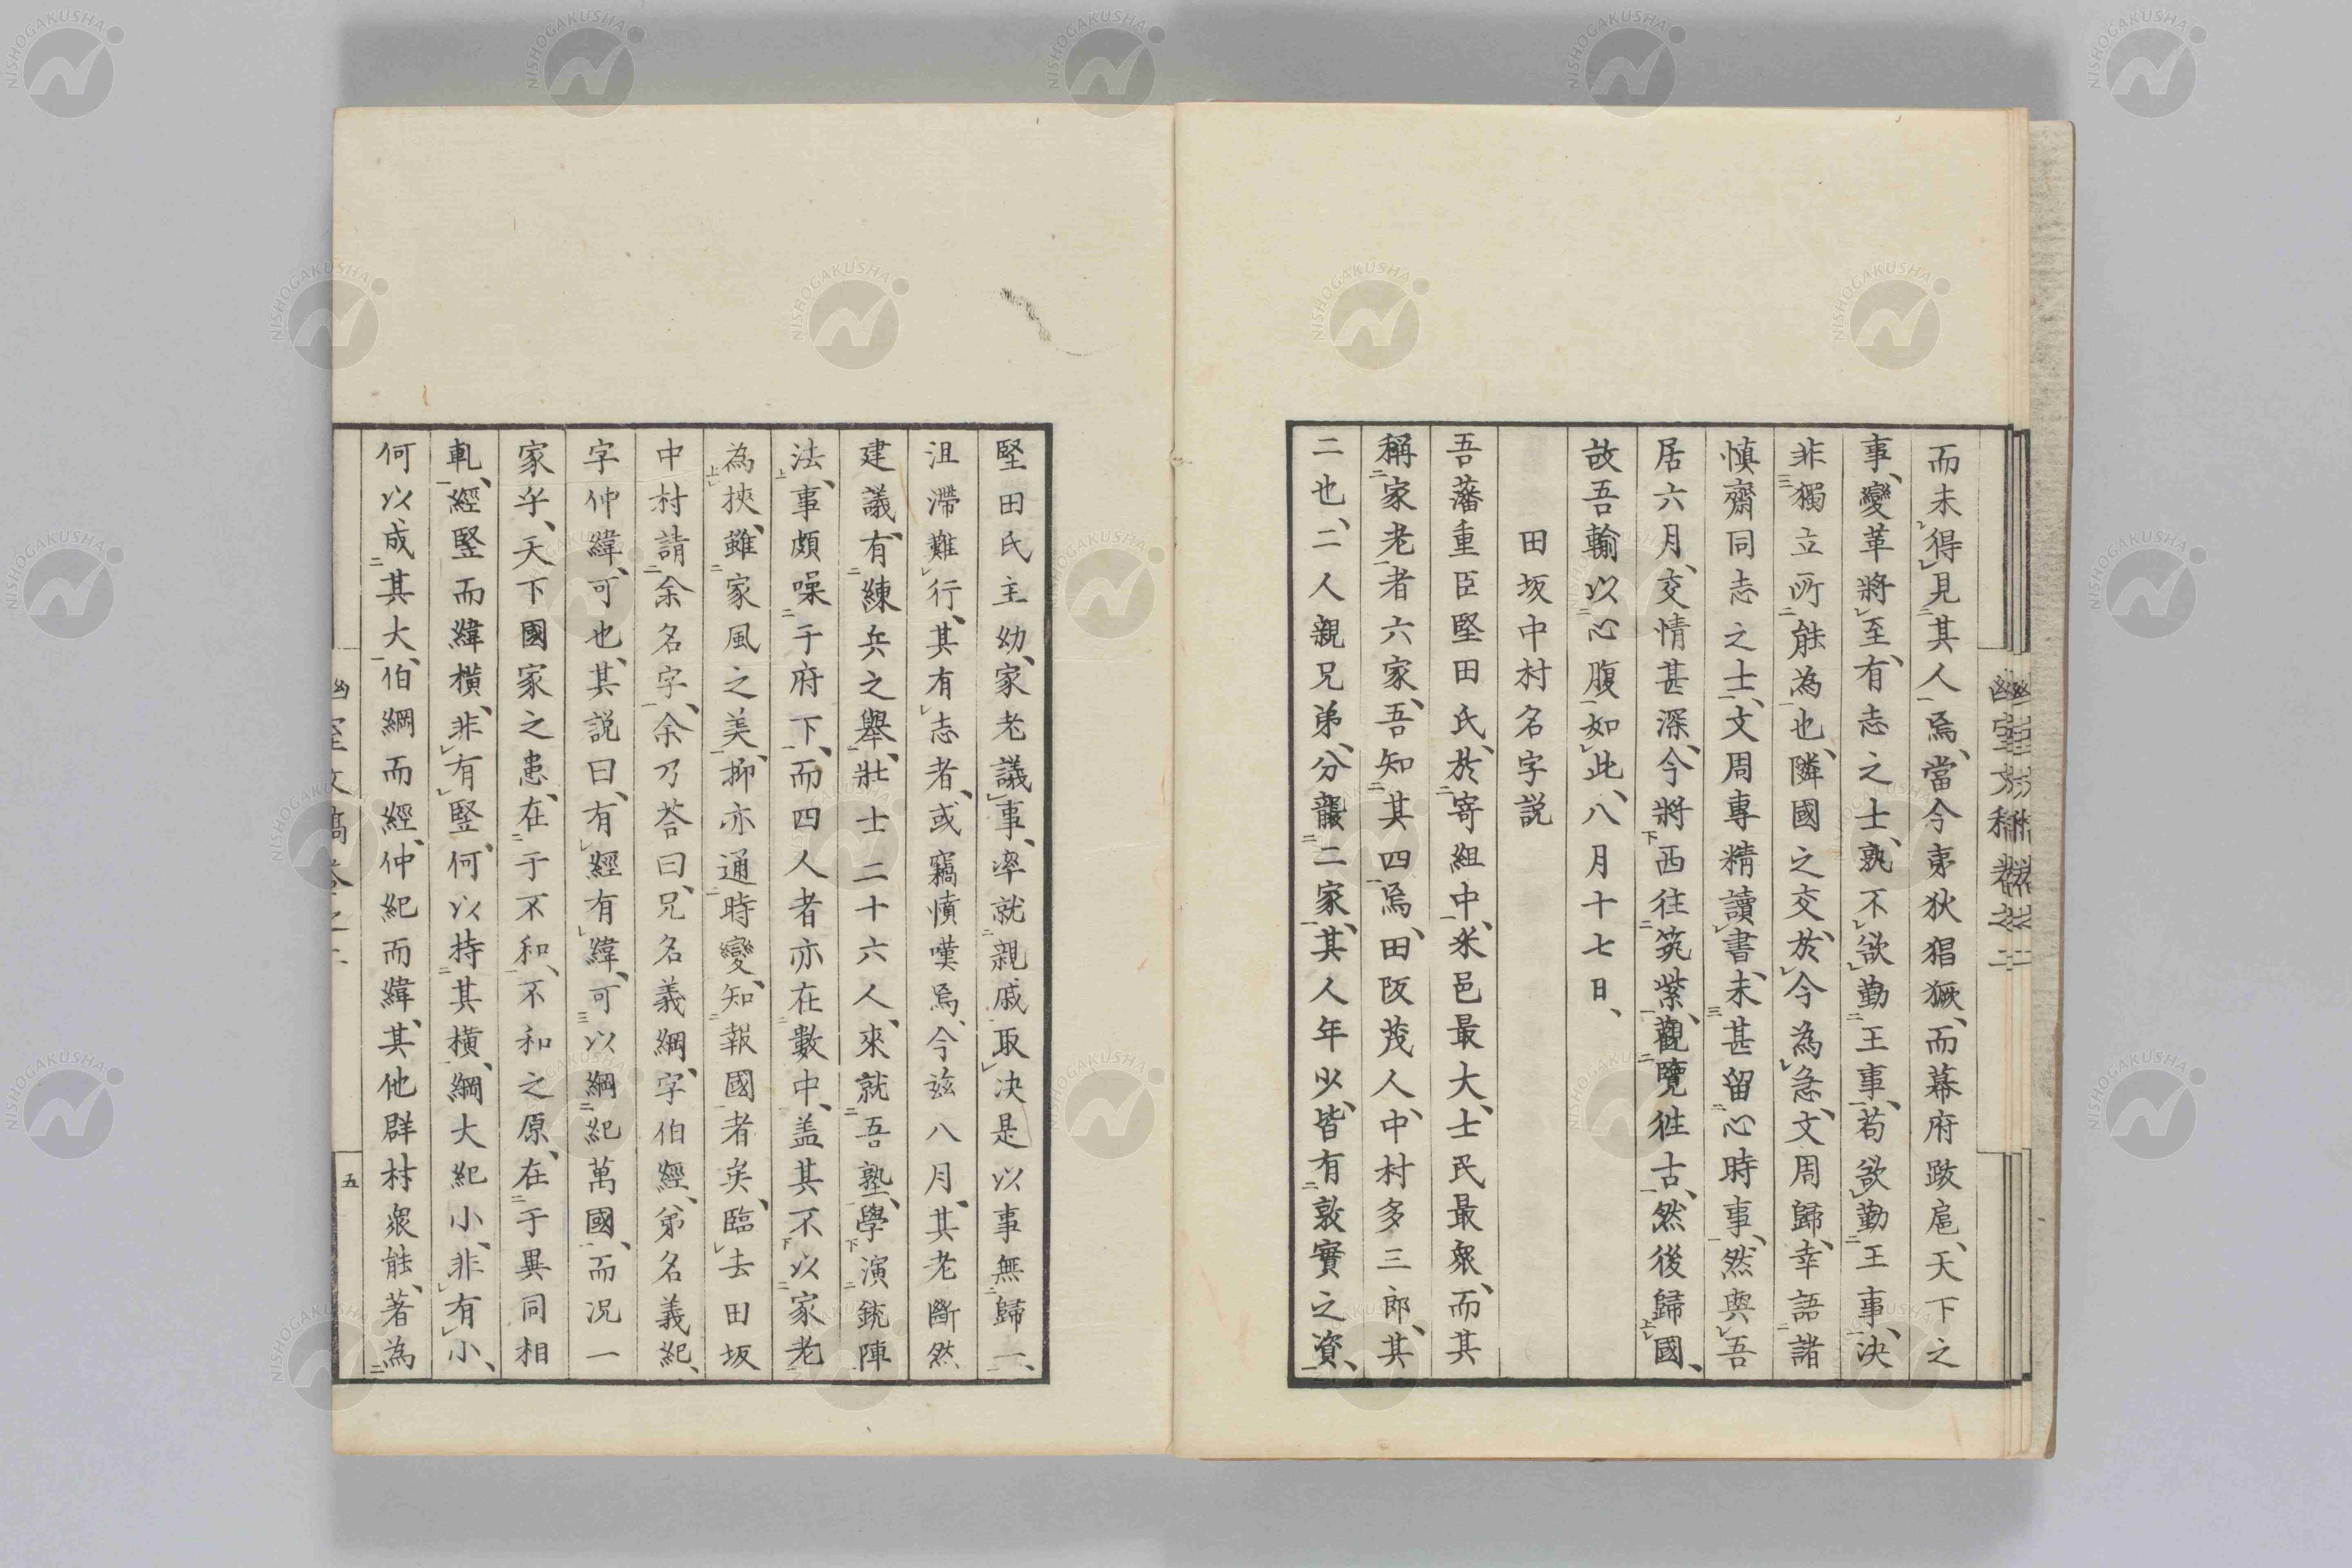 而未得見其人焉、當今夷狄猖獗、而幕府跋扈、天下之
事、變革將至、有志之士、孰不欲勤王事、苟欲勤王事、決
非獨立所能為也、隣國之交、於今為急、文周歸、幸語諸
慎齋同志之士、文周專精讀書、未甚留心時事、然與吾
居六月、交情甚深、今將西往筑紫、觀覽徃古、然後歸國、
故吾輸以心腹如此、八月十七日、
田坂中村名字説
吾藩重臣堅田氏、於寄組中、釆邑最大、士民最衆、而其
稱家老者六家、吾知其四焉、田阪茂人、中村多三郎、其
二也、二人親兄弟、分襲二家、其人年少、皆有敦實之資、
堅田氏主幼、家老議事、率就親戚取決是以事無歸一、
沮滯難行、其有志者、或竊憤嘆焉、今玆八月、其老斷然
建議、有練兵之舉、壯士二十六人、來就吾塾、學演銃陣
法、事頗噪于府下、而四人者亦在數中、盖其不以家老
為挾、雖家風之美、抑亦通時變、知報國者矣、臨去田坂
中村請余名字、余乃荅曰、兄名義綱、字伯經、弟名義紀、
字仲緯、可也、其説曰、有經有緯、可以綱紀萬國、而況一
家乎、天下國家之患、在于不和、不和之原、在于異同相
軋、經竪而緯橫、非有竪、何以持其橫、綱大紀小、非有小、
何以成其大、伯綱而經、仲紀而緯、其他群材衆能、著為
幽室文稿卷之二
五
NISHOGAKUSHA